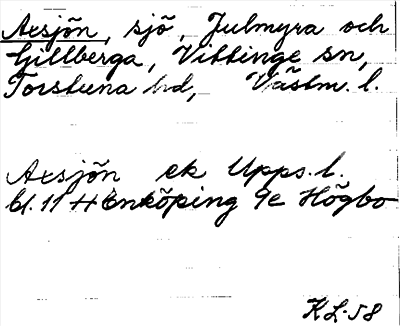 Axsjön, sjö, Julmyra och
Gillberga, Vittinge sn,
Torstuna hd, Västm. l.
Axsjön ek Upps. l.
bl. 11 H Enköping 9e Högbo
KL-58